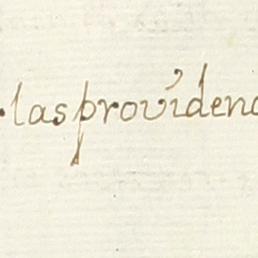 las providenc